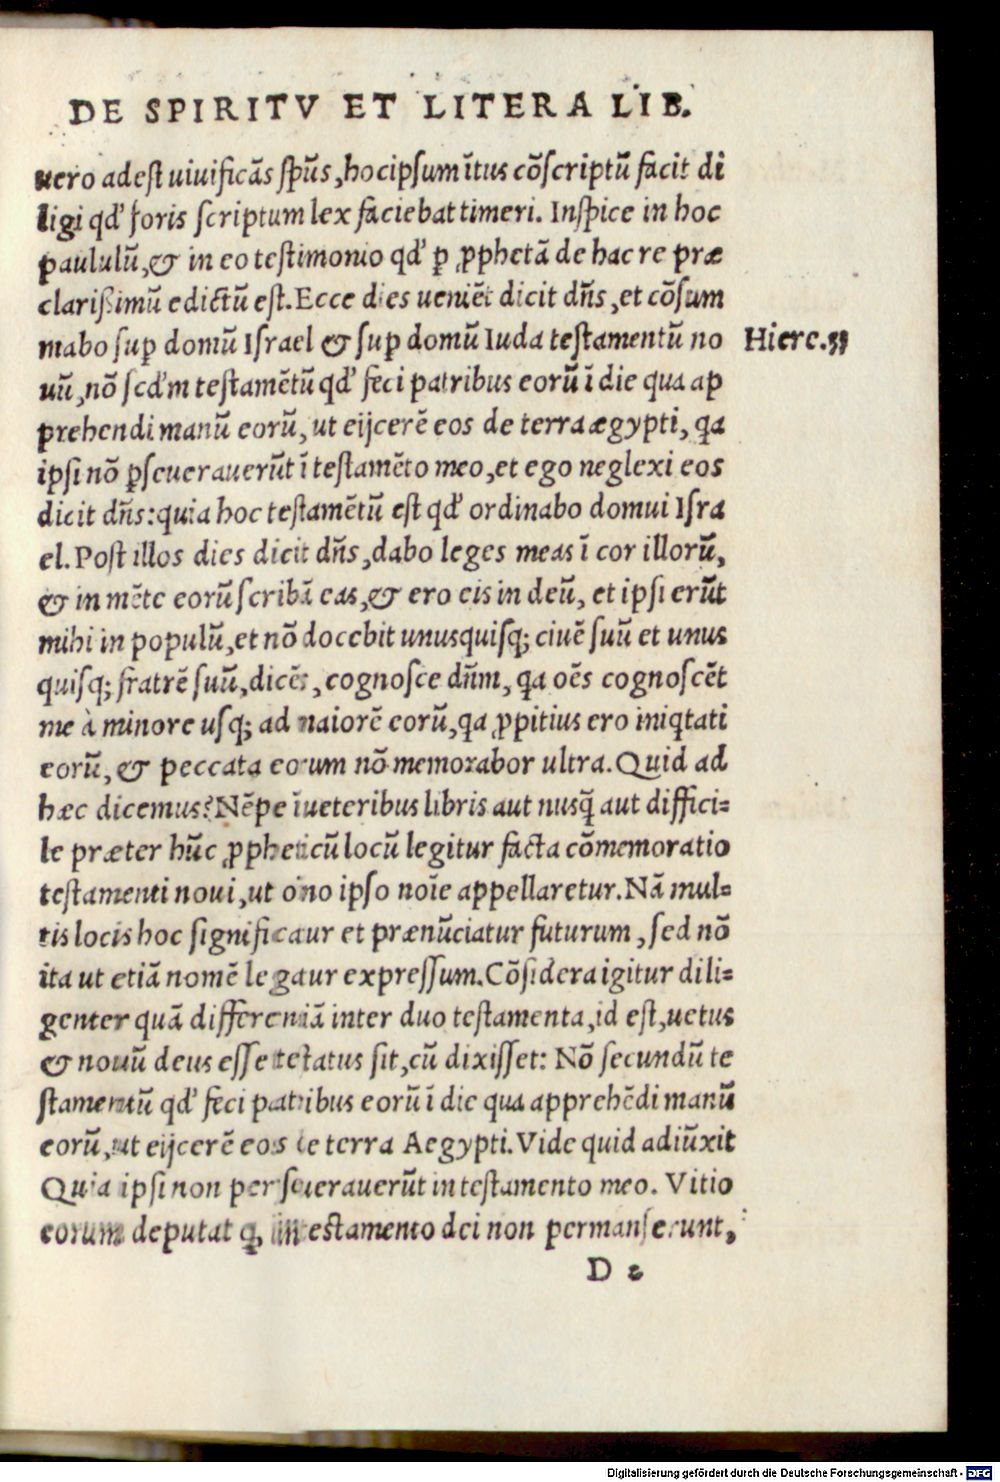 DE SPIRITV ET LITERA LIB.
uero adest uiuificãs sp̃us, hocipsum ĩtus cõscriptũ facit di
ligi qđ foris scriptum lex faciebat timeri. Inspice in hoc
paululũ, & in eo testimonio qđ ꝑ ꝓphetã de hac re præ
clarissimũ edictũ est. Ecce dies ueniẽt dicit dñs, et cõsum
mabo suꝑ domũ Israel & suꝑ domũ Iuda testamentũ no
Hiere.31
uũ, nõ scđm testamẽtũ qđ feci patribus eorũ ĩ die qua ap
prehendi manũ eorũ, ut eijcerẽ eos de terra ægypti, qa
ipsi nõ ꝑseuerauerũt ĩ testamẽto meo, et ego neglexi eos
dicit dñs: quia hoc testamẽtũ est qđ ordinabo domui Isra
el. Post illos dies dicit dñs, dabo leges meas ĩ cor illorũ,
& in mẽte eorũ scribã eas, & ero eis in deũ, et ipsi erũt
mihi in populũ, et nõ docebit unusquisq; ciuẽ suũ et unus
quisq; fratrẽ suũ, dicẽs, cognosce dñm, qa oẽs cognoscẽt
me à minore usq; ad maiorẽ eorũ, qa ꝓpitius ero iniqtati
eorũ, & peccata eorum nõ memorabor ultra. Quid ad
hæc dicemus? Nẽpe ĩ ueteribus libris aut nusq̃ aut diffici=
le præter hũc ꝓpheticũ locũ legitur facta cõmemoratio
testamenti noui, ut oĩno ipso noĩe appellaretur. Nã mul=
tis locis hoc significaur et prænũciatur futurum, sed nõ
ita ut etiã nomẽ legaur expressum. Cõsidera igitur dili=
genter quã differentiã inter duo testamenta, id est, uetus
& nouũ deus esse testatus sit, cũ dixisset: Nõ secundũ te
stamentũ qđ feci patribus eorũ ĩ die qua apprehẽdi manũ
eorũ, ut eijcerẽ eos de terra Aegypti. Vide quid adiũxit
Quia ipsi non perseuerauerũt in testamento meo. Vitio
eorum deputat ꝙ in testamento dei non permanserunt,
D 2
Digitalisierung gefördert durch die Deutsche Forschungsgemeinschaft - DFG